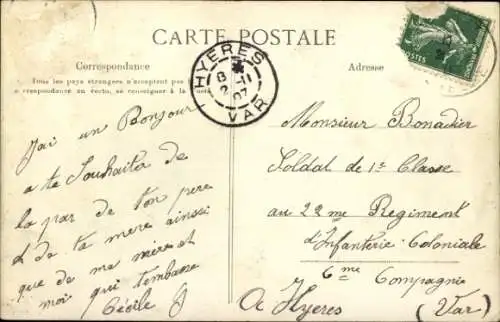 CARTE POSTALE
Correspondance
Adresse
Tous les pays étrangers n'acceptent pas
correspondance au recto, se renseigner à la
HYÈRES
8
2 -11
07
VAR
POSTES
J'ai un Bonjour
a te Souhaita de
la par de ton pere
et de ta mere ainsi
que de ma mère et
moi qui t'embrasse
Cécile
Monsieur Bonadier
Soldat de 1e Classe
au 22me Regiment
d'Infanterie Coloniale
6me Compagnie
a Hyeres (Var)